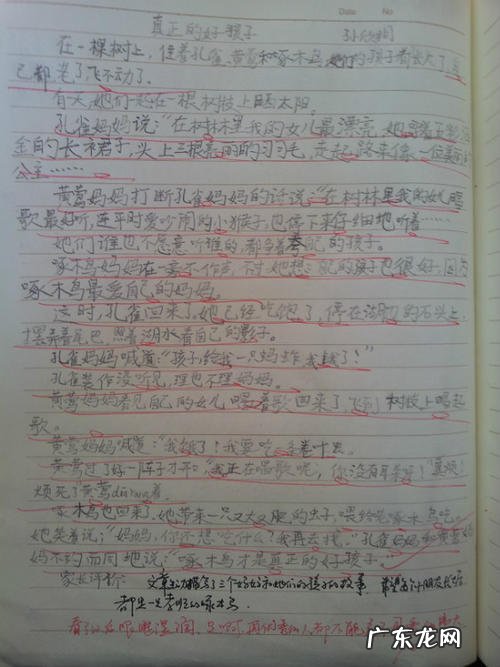 Date No
真正的好孩子
在一棵树上,住着孔雀、黄莺和啄木鸟,她们的孩子都长大了,
已都老了,飞不动了。
有天她们起在一根树枝上晒太阳。
孔雀妈妈说:"在树林里我的女儿最漂亮,她穿着
金的长裙子,头上三根亮丽的羽毛,走起路来像一位美丽的
公主……
黄莺妈妈打断孔雀妈妈的话说:"在树林里我的女儿唱
歌最好听,连平时爱吵闹的小猴子,也停下来仔细地听着……
她们谁也不愿意听谁的,都夸着自己的孩子。
啄木鸟妈妈在一旁不作声,不过她想:自己的孩子也很好,因为
啄木鸟最爱自己的妈妈。
这时,孔雀回来了,她已经吃饱了,停在湖边的石头上,
摆弄着尾巴,照着湖水看自己的影子。
孔雀妈妈喊道:"孩子,给我一只蚂蚱,我饿了!"
孔雀装作没听见,理也不理妈妈。
黄莺妈妈看见自己的女儿唱着歌回来了,飞到树枝上唱起
歌。
黄莺妈妈喊道:"我饿了!我要吃
黄莺过了好一阵子才开口:"我正在唱歌呢,你没有耳朵吗!真烦!
烦死了黄莺 着。
啄木鸟也回来了,她带来一只又大又肥的虫子,喂给老啄木鸟吃。
她笑着说:"妈妈,你还想吃什么?我再去找。"孔雀妈妈和黄莺妈
妈不约而同地说:"啄木鸟才是真正的好孩子。
家长评析
文章生动描写了三个妈妈和她们的孩子的故事,希望 小朋友长大后
都
看了以后眼眶湿润,
广东龙网